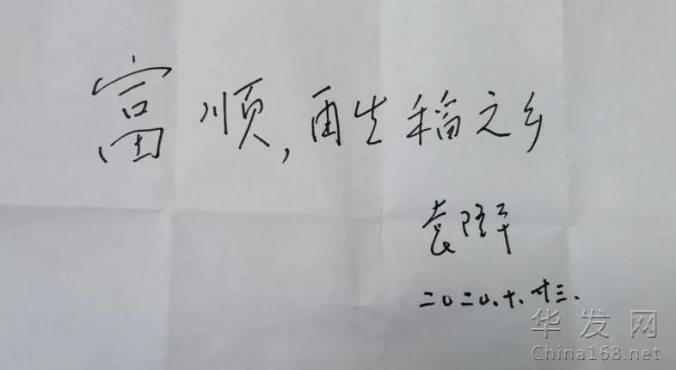 富顺，再生稻之乡
袁隆平
二〇二〇.十.廿三.
华发网
China168.net